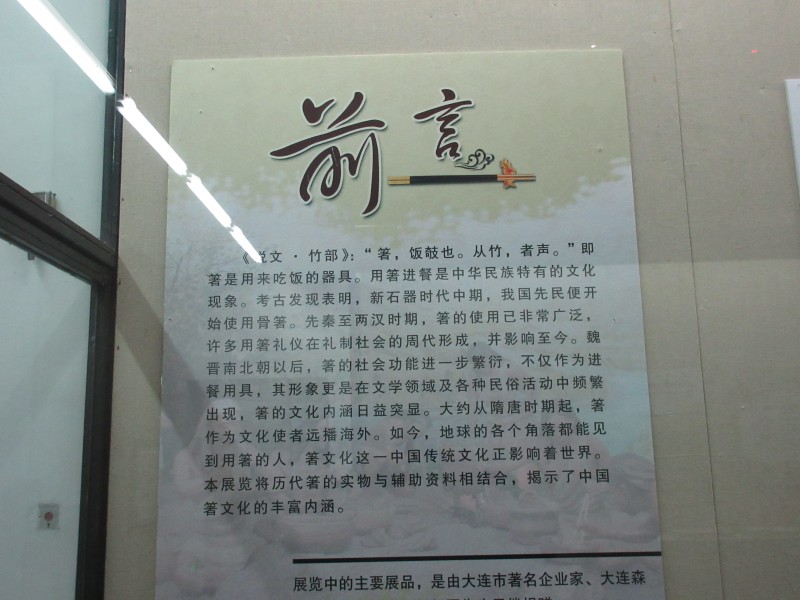 前言
《说文·竹部》：“箸，饭攲也。从竹，者声。”即
箸是用来吃饭的器具。用箸进餐是中华民族特有的文化
现象。考古发现表明，新石器时代中期，我国先民便开
始使用骨箸。先秦至两汉时期，箸的使用已非常广泛，
许多用箸礼仪在礼制社会的周代形成，并影响至今。魏
晋南北朝以后，箸的社会功能进一步繁衍，不仅作为进
餐用具，其形象更是在文学领域及各种民俗活动中频繁
出现，箸的文化内涵日益突显。大约从隋唐时期起，箸
作为文化使者远播海外。如今，地球的各个角落都能见
到用箸的人，箸文化这一中国传统文化正影响着世界。
本展览将历代箸的实物与辅助资料相结合，揭示了中国
箸文化的丰富内涵。
展览中的主要展品，是由大连市著名企业家、大连森